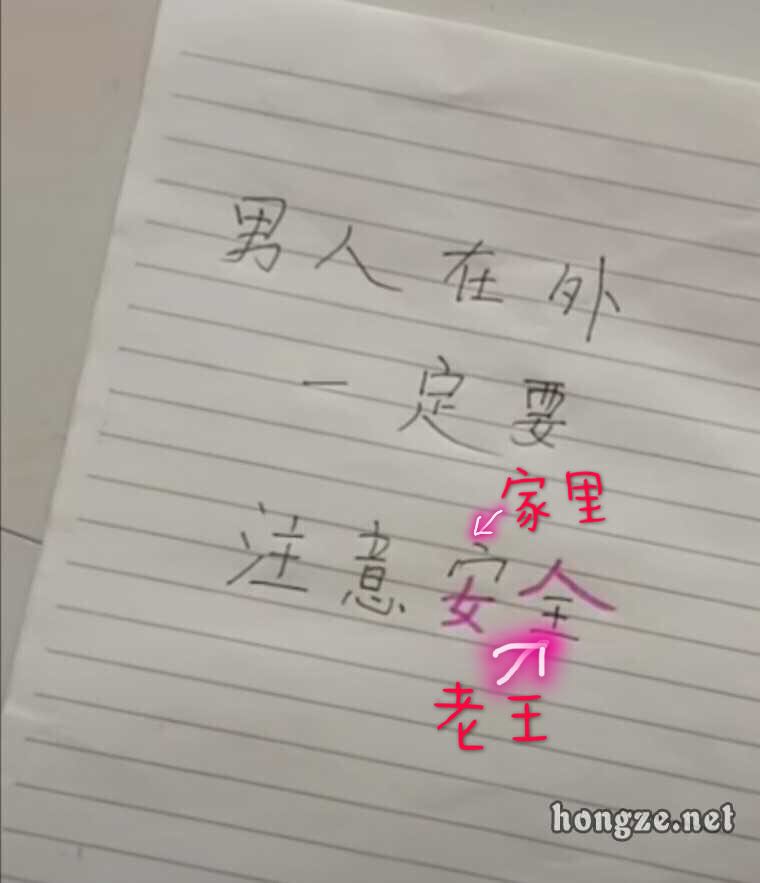 男人在外
一定要
家里
注意安全
老王
hongze.net